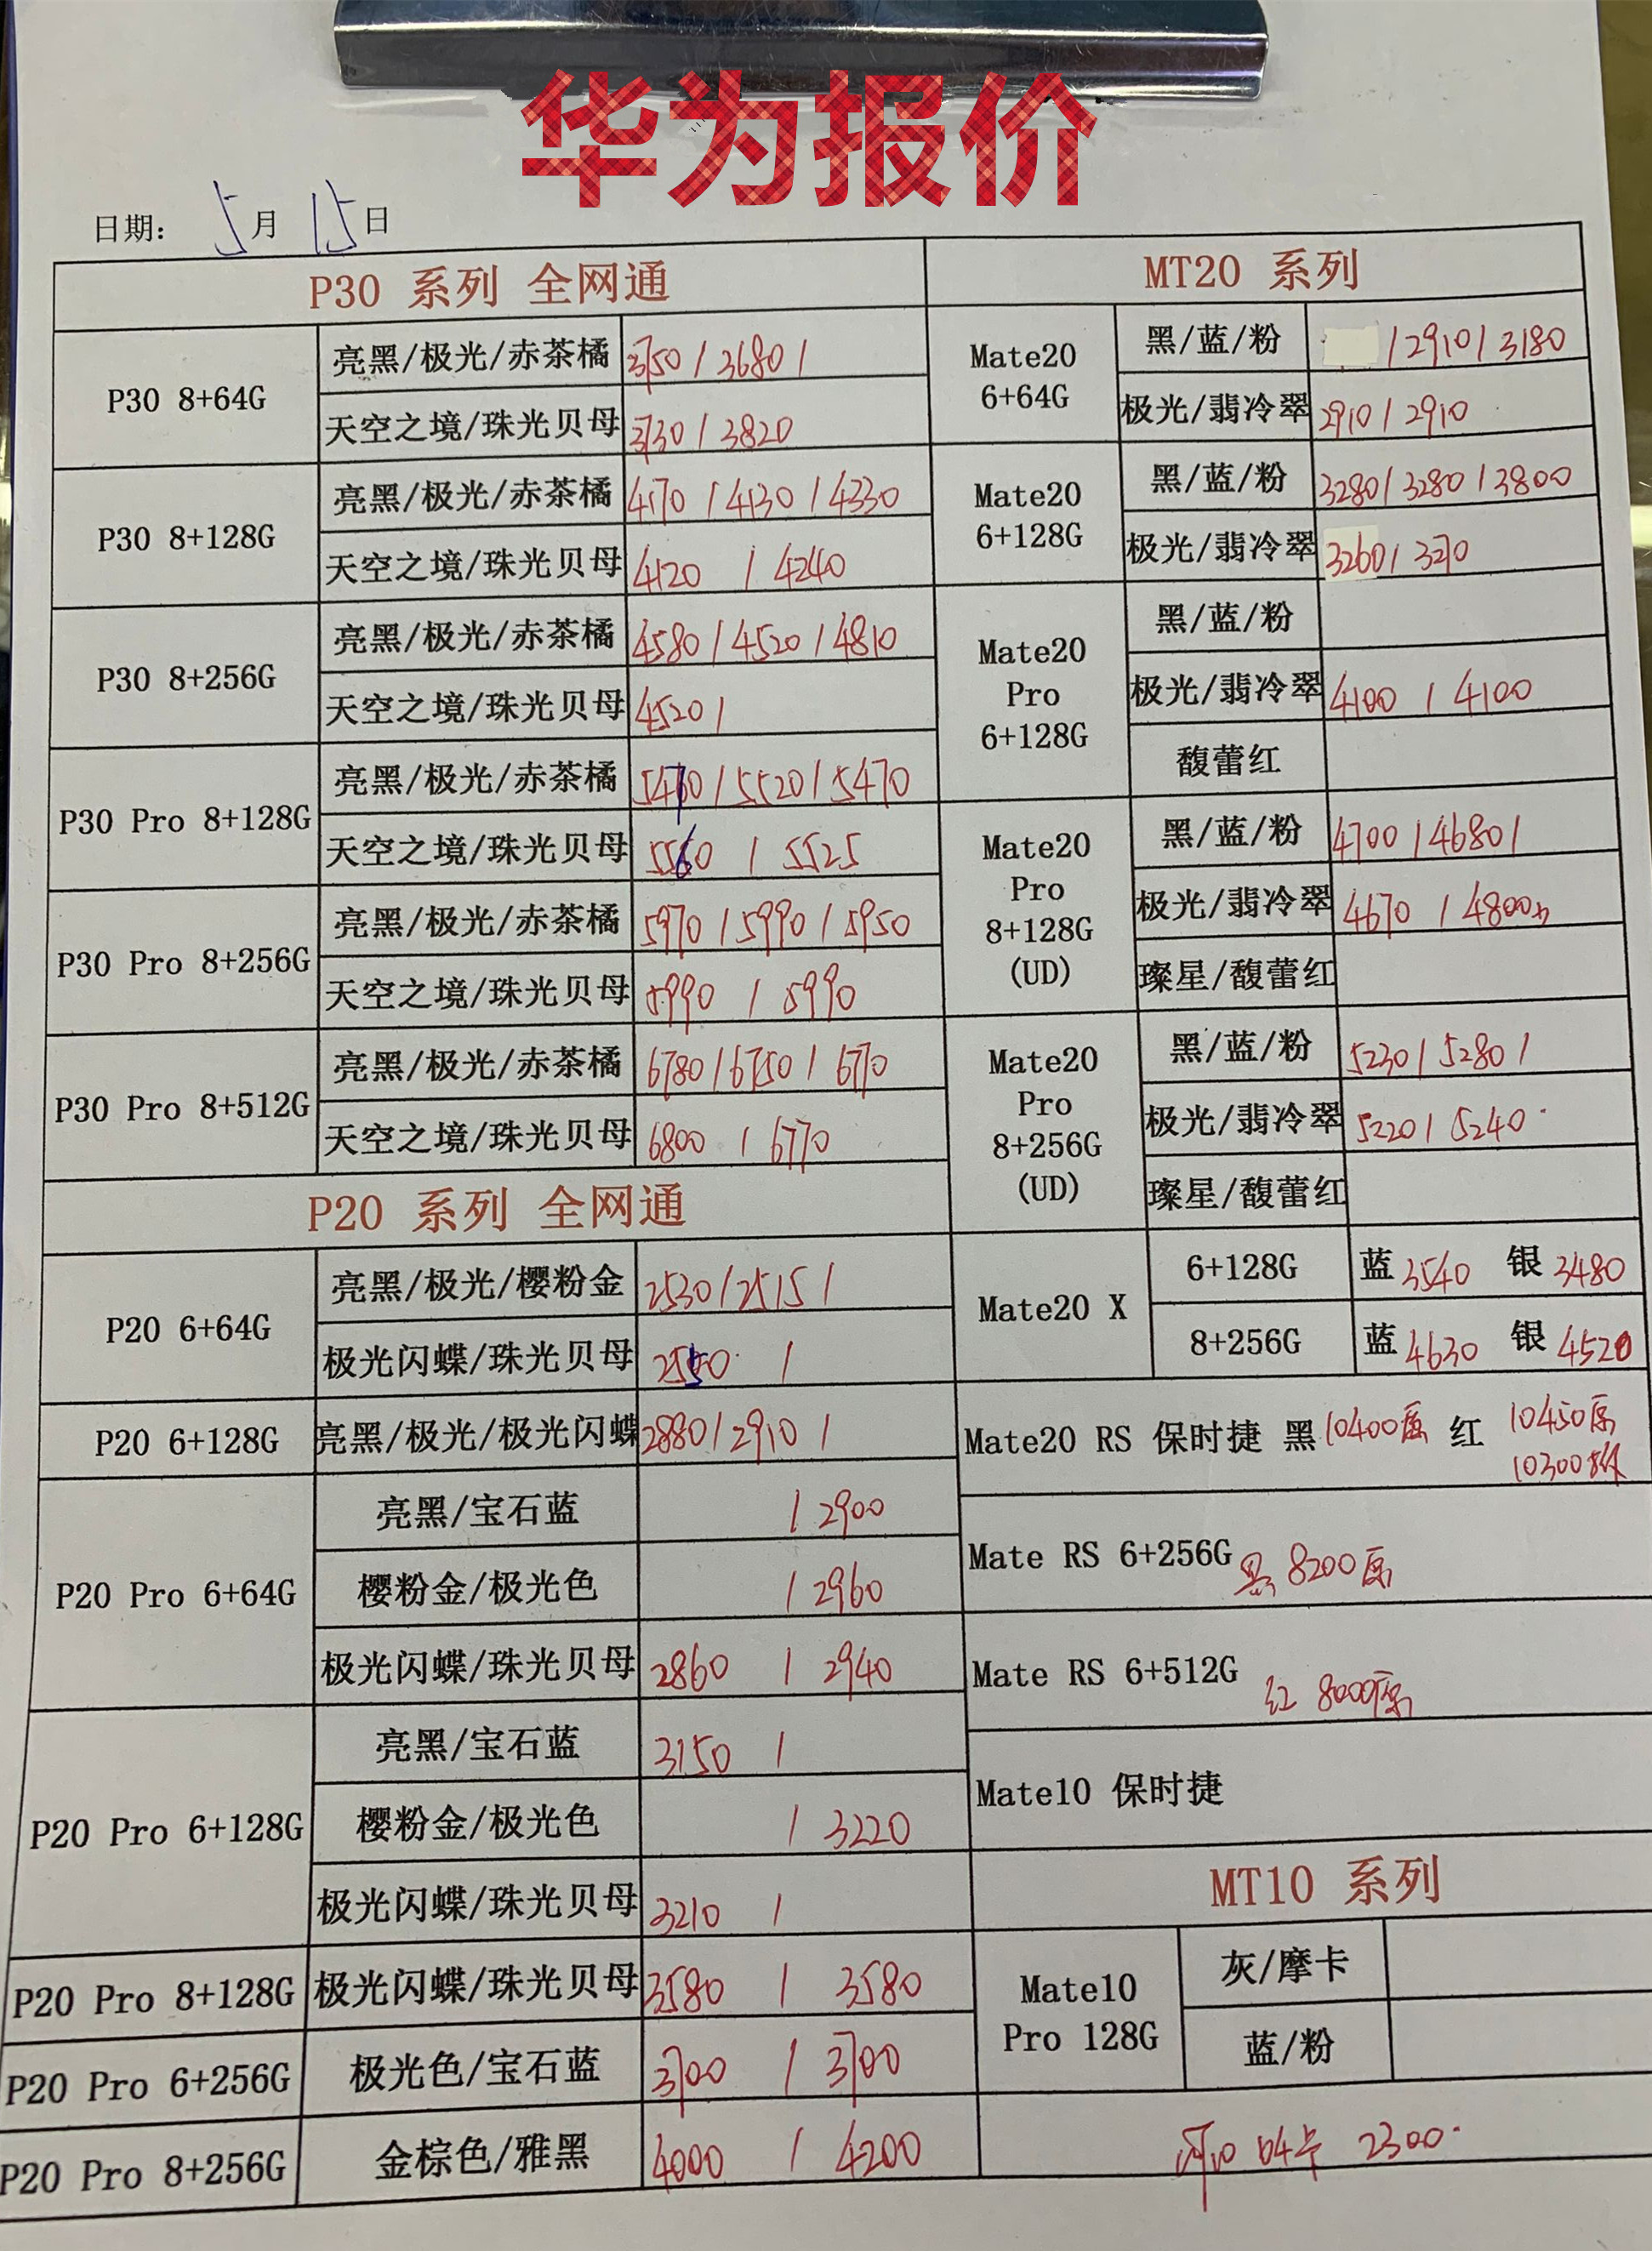 华为报价
日期: 5月 15日
P30 系列 全网通
P30 8+64G
亮黑/极光/赤茶橘 3750 / 3680 /
天空之境/珠光贝母 3730 / 3820
P30 8+128G
亮黑/极光/赤茶橘 4170 / 4130 / 4330
天空之境/珠光贝母 4120 / 4240
P30 8+256G
亮黑/极光/赤茶橘 4580 / 4520 / 4810
天空之境/珠光贝母 4520 /
P30 Pro 8+128G
亮黑/极光/赤茶橘 5470 / 5520 / 5470
天空之境/珠光贝母 5560 / 5525
P30 Pro 8+256G
亮黑/极光/赤茶橘 5970 / 5990 / 5950
天空之境/珠光贝母 5990 / 5990
P30 Pro 8+512G
亮黑/极光/赤茶橘 6780 / 6750 / 6770
天空之境/珠光贝母 6800 / 6770
P20 系列 全网通
P20 6+64G
亮黑/极光/樱粉金 2530 / 2515 /
极光闪蝶/珠光贝母 2550 /
P20 6+128G
亮黑/极光/极光闪蝶 2880 / 2910 /
P20 Pro 6+64G
亮黑/宝石蓝 / 2900
樱粉金/极光色 / 2960
极光闪蝶/珠光贝母 2860 / 2940
P20 Pro 6+128G
亮黑/宝石蓝 3150 /
樱粉金/极光色 / 3220
极光闪蝶/珠光贝母 3210 /
P20 Pro 8+128G
极光闪蝶/珠光贝母 3580 / 3580
P20 Pro 6+256G
极光色/宝石蓝 3700 / 3700
P20 Pro 8+256G
金棕色/雅黑 4000 / 4200
MT20 系列
Mate20
6+64G
黑/蓝/粉 / 2910 / 3180
极光/翡冷翠 2910 / 2910
Mate20
6+128G
黑/蓝/粉 3280 / 3280 / 3800
极光/翡冷翠 3260 / 3270
Mate20
Pro
6+128G
黑/蓝/粉
极光/翡冷翠 4100 / 4100
馥蕾红
Mate20
Pro
8+128G
(UD)
黑/蓝/粉 4700 / 4680 /
极光/翡冷翠 4670 / 4800
璨星/馥蕾红
Mate20
Pro
8+256G
(UD)
黑/蓝/粉 5230 / 5280 /
极光/翡冷翠 5220 / 5240
璨星/馥蕾红
Mate20 X
6+128G 蓝 3540 银 3480
8+256G 蓝 4630 银 4520
Mate20 RS 保时捷 黑 10400原 红 10450原
10300
Mate RS 6+256G 黑 8200原
Mate RS 6+512G 红 8000原
Mate10 保时捷
MT10 系列
Mate10
Pro 128G
灰/摩卡
蓝/粉
64卡 2300